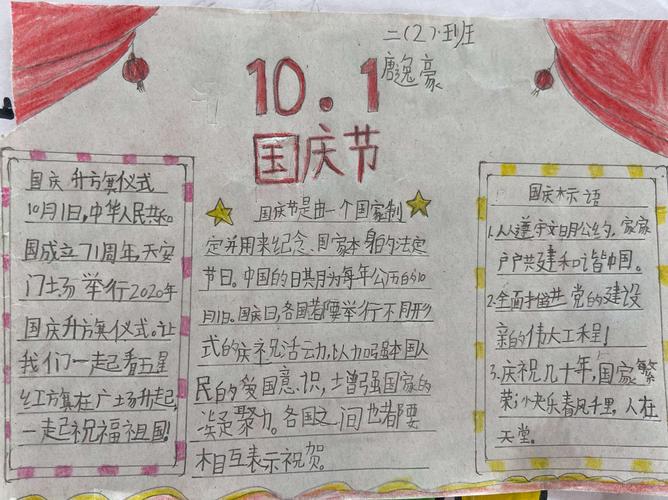 二(2)班
唐逸豪
10.1
国庆节
国庆升旗仪式
10月1日,中华人民共和
国成立71周年,天安
门广场举行2020年
国庆升旗仪式。让
我们一起看五星
红旗在广场升起,
一起祝福祖国!
国庆节是由一个国家制
定并用来纪念、国家本身的法定
节日。中国的日其月为每年公历的10
月1日。国庆日,各国都要举行不同形
式的庆祝活动,以力口强本国人
民的爱国意识,增强国家的
凝聚力。各国之间也都要
相互表示祝贺。
国庆标语
1.人人遵守文明公约,家家
户户共建和谐中国。
2.全面推进党的建设
新的伟大工程!
3.庆祝几十年,国家繁
荣;快乐春风千里,人在
天堂。